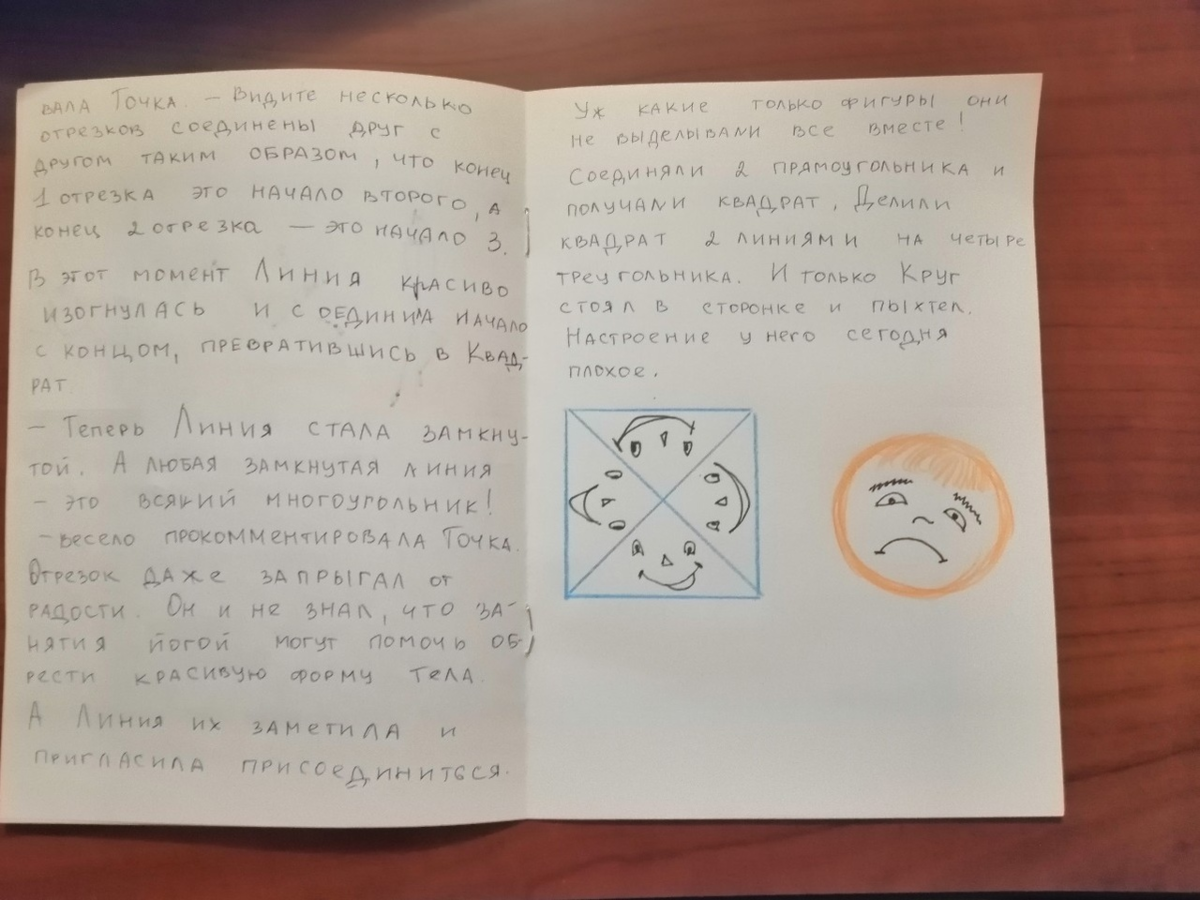 вала Точка. – Видите несколько
отрезков соединены друг с
другом таким образом, что конец
1 отрезка это начало второго, а
конец 2 отрезка — это начало 3.
В этот момент Линия красиво
изогнулась и соединила начало
с концом, превратившись в Квад-
рат.
– Теперь Линия стала замкну-
той. А любая замкнутая линия
– это всякий многоугольник!
– весело прокомментировала Точка.
Отрезок даже запрыгал от
радости. Он и не знал, что за-
нятия йогой могут помочь об-
рести красивую форму тела.
А Линия их заметила и
пригласила присоединиться.
Уж какие только фигуры они
не выделывали все вместе!
Соединяли 2 прямоугольника и
получали квадрат. Делили
квадрат 2 линиями на четыре
треугольника. И только Круг
стоял в сторонке и пыхтел.
Настроение у него сегодня
плохое.